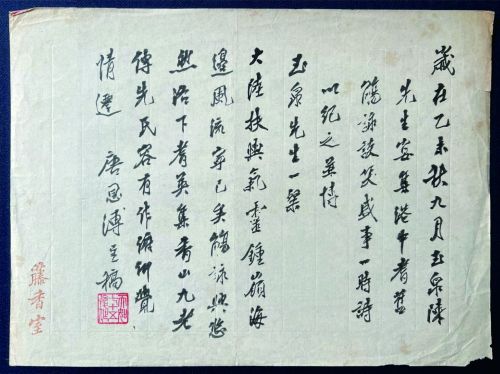 歲在乙未秋九月玉泉陳
先生宴集港中耆舊
觴詠談笑盛事一時詩
以紀之並博
玉泉先生一粲
大陸扶輿氣靈鍾嶺海
邊風流寧已矣觴詠興悠
然洛下耆英集香山九老
傳先民容有作俯仰覺
情遷 唐恩溥呈稿
籐香室